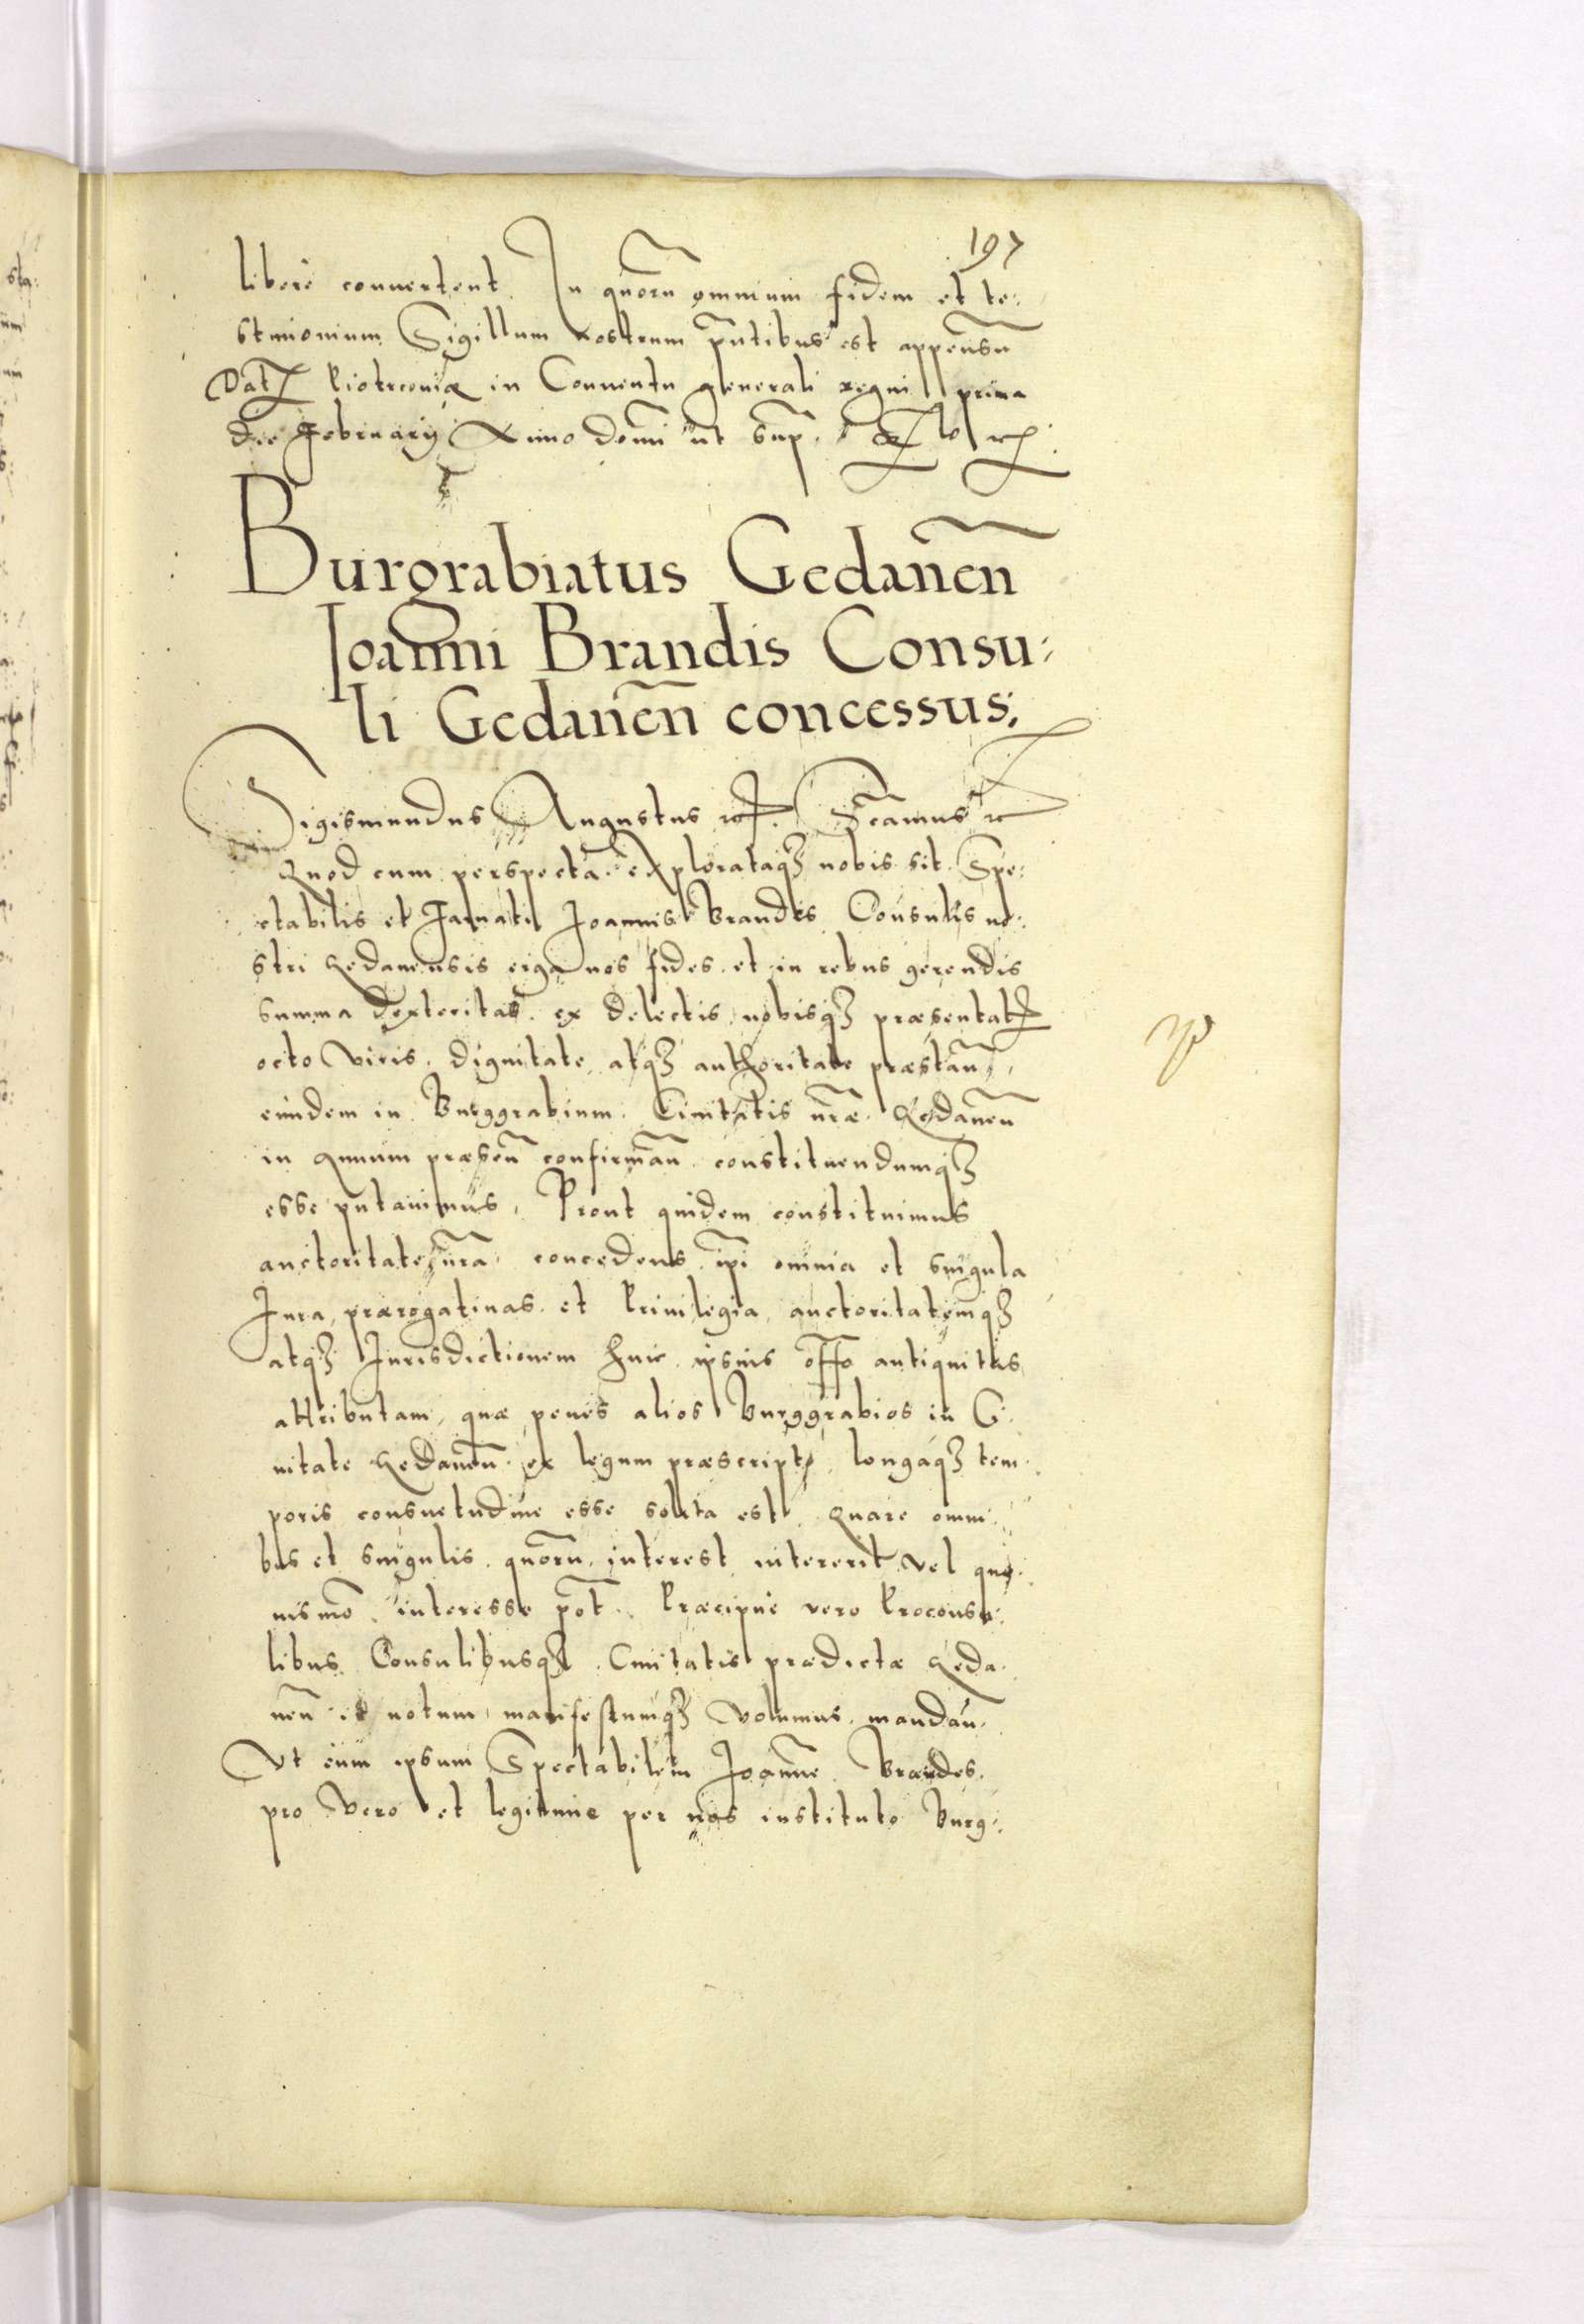 197
libere conuertent. In quorũ omnium fidem et te:
stimonium Sigillum nostrum pñtibus est appensũ
Dat Piotrcouiæ in Conuentu generali regni prima
die February Anno domi ut supᵃ.
Burgrabiatus Gedaneñ
Joanni Brandis Consu:
li Gedaneñ concessus.
Sigismundus Augustus rc. Scãmus rc
Quod cum perspecta explorataqȝ nobis sit Spe:
ctabilis et Famati Joannis Brandes Consulis no:
stri Gedanensis erga nos fides et in rebus gerendis
summa dexteritas ex delectis nobisqȝ præsentat
octo viris dignitate atqȝ authoritate præstañ,
eundem in Burggrabium Ciuitatis nræ Gedaneñ
in annum præseñ confirmañ constituendumqȝ
esse putauimus, Prout quidem constituimus
auctoritate nrã concedens ipi omnia et singula
Jura, prærogatiuas et Priuilegia auctoritatemqȝ
atqȝ Jurisdictionem huic ipsius offo antiquitus
attributam, quæ penes alios Burggrabios in Ci:
uitate Gedaneñ ex legum præscripto, longaqȝ tem:
poris consuetudine esse solita est. Quare omni:
bus et singulis quorũ interest intererit vel quo:
uismõ interesse pot. Præcipue vero Proconsu:
libus Consulibusqȝ Ciuitatis prædictæ Geda:
neñ id notum manifestumqȝ volumus mandañ
Vt eum ipsum Spectabilem Joannẽ Brandes
pro vero et legitime per nos instituto Burg: